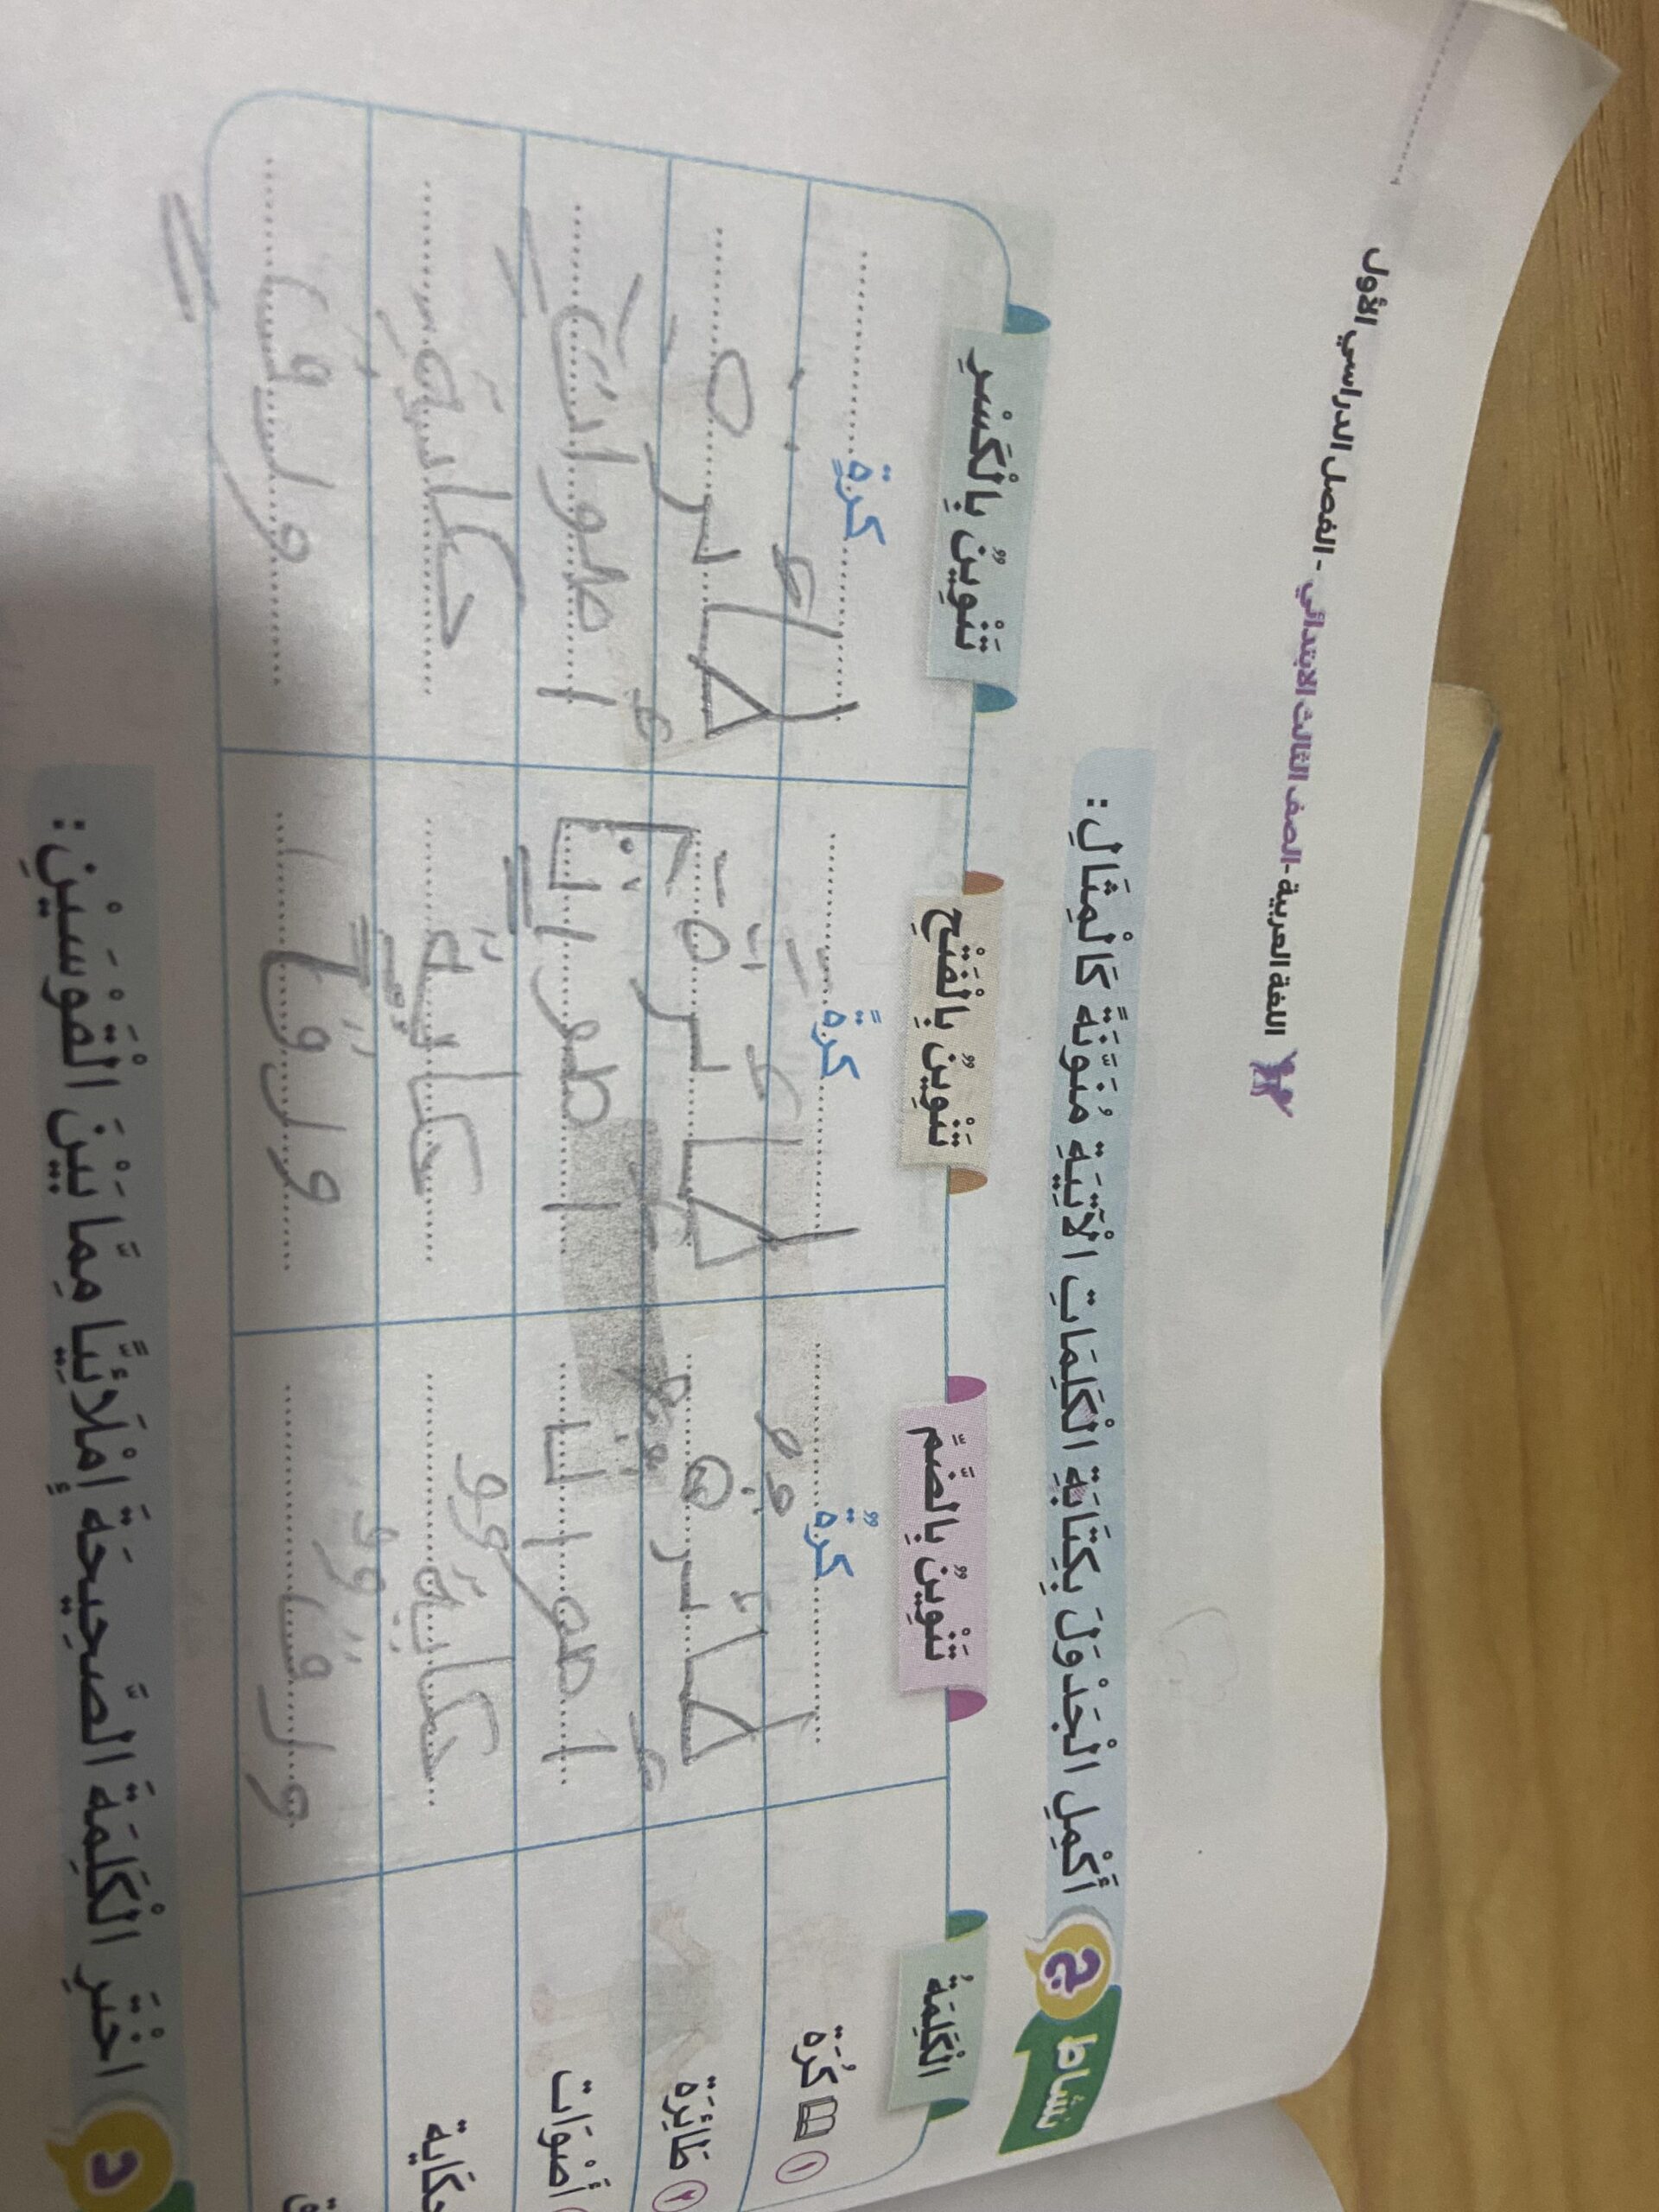 اللغة العربية-الصف الثالث الابتدائي - الفصل الدراسي الأول
نشاط ج أَكْمِلِ الْجَدْوَلَ بِكِتَابَةِ الْكَلِمَاتِ الْآتِيَةِ مُنَوَّنَةً كَالْمِثَالِ:
الْكَلِمَةُ تَنْوِينٌ بِالضَّمِّ تَنْوِينٌ بِالْفَتْحِ تَنْوِينٌ بِالْكَسْرِ
١ كُرَة كرةٌ كرةً كرةٍ
٢ طَائِرَة طائرة طائرةً
أَصْوَات
حكاية حكايةً حكايةٍ
ورق ورقًا ورق
د اخْتَرِ الْكَلِمَةَ الصَّحِيحَةَ إِمْلَائِيًّا مِمَّا بَيْنَ الْقَوْسَيْنِ: